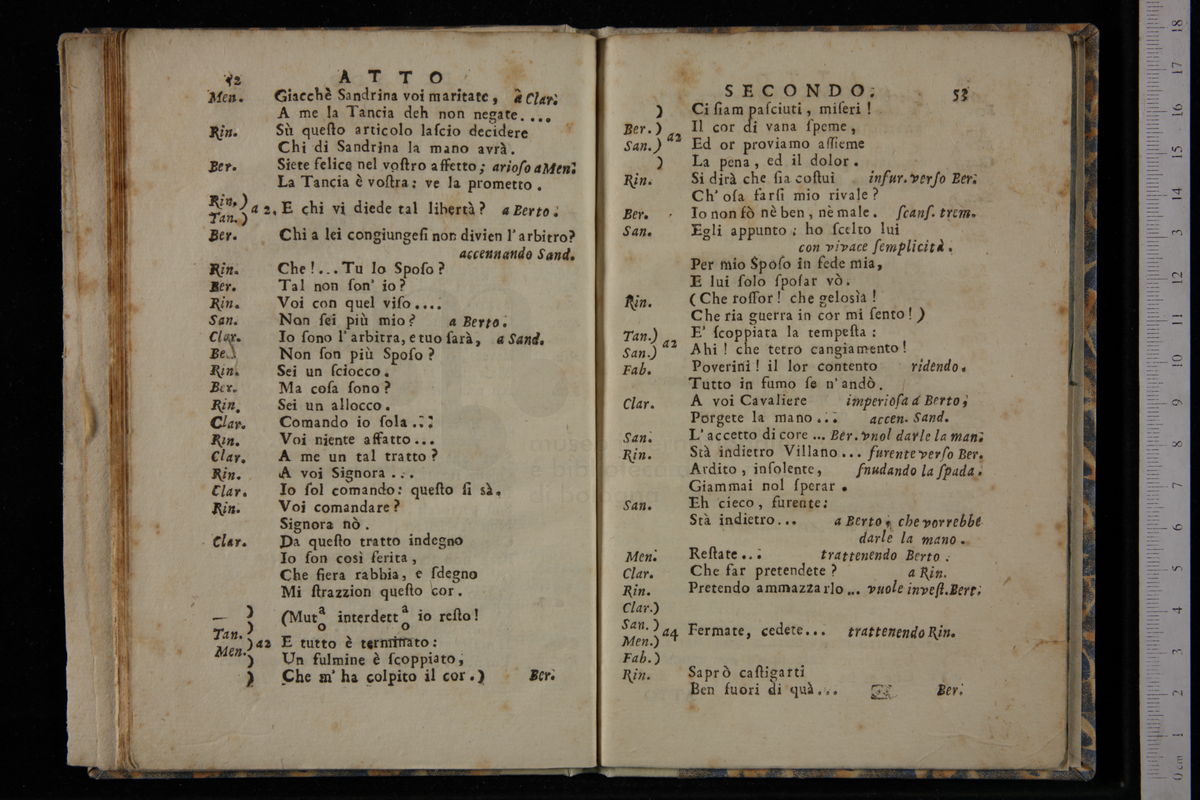 52
ATTO
Men. Giacchè Sandrina voi maritate, a Clar.
A me la Tancia deh non negate....
Rin. Sù queſto articolo laſcio decidere
Chi di Sandrina la mano avrà.
Ber. Siete felice nel voſtro affetto; arioſo a Men.
La Tancia è voſtra: ve la prometto.
Rin.) Tan.) a 2. E chi vi diede tal libertà? a Berto.
Ber. Chi a lei congiungeſi non divien l'arbitro?
accennando Sand.
Rin. Che!... Tu lo Spoſo?
Ber. Tal non ſon' io?
Rin. Voi con quel viſo....
San. Non ſei più mio? a Berto.
Clar. Io ſono l'arbitra, e tuo ſarà, a Sand.
Be. Non ſon più Spoſo?
Rin. Sei un ſciocco.
Ber. Ma coſa ſono?
Rin. Sei un allocco.
Clar. Comando io ſola...
Rin. Voi niente affatto...
Clar. A me un tal tratto?
Rin. A voi Signora...
Clar. Io ſol comando: queſto ſi sà.
Rin. Voi comandare?
Signora nò.
Clar. Da queſto tratto indegno
Io ſon così ferita,
Che fiera rabbia, e ſdegno
Mi ſtrazzion queſto cor.
) (Mut a/o interdett a/o io reſto!
Tan.) Men.) a2 E tutto è terminato:
) Un fulmine è ſcoppiato,
) Che m' ha colpito il cor.) Ber.
SECONDO. 53
) Ci ſiam paſciuti, miſeri!
Ber.) a2 Il cor di vana ſpeme,
San.) Ed or proviamo aſſieme
) La pena, ed il dolor.
Rin. Si dirà che ſia coſtui infur. verſo Ber.
Ch' oſa farſi mio rivale?
Ber. Io non ſò nè ben, nè male. ſcanſ. trem.
San. Egli appunto; ho ſcelto lui
con vivace ſemplicità.
Per mio Spoſo in fede mia,
E lui ſolo ſpoſar vò.
Rin. (Che roſſor! che geloſia!
Che ria guerra in cor mi ſento!)
Tan.) a2 E' ſcoppiata la tempeſta:
San.) Ahi! che tetro cangiamento!
Fab. Poverini! il lor contento ridendo.
Tutto in fumo ſe n'andò.
Clar. A voi Cavaliere imperioſa a Berto,
Porgete la mano... accen. Sand.
San. L'accetto di core... Ber. vuol darle la man.
Rin. Stà indietro Villano... furente verſo Ber.
Ardito, inſolente, ſnudando la ſpada.
Giammai nol ſperar.
San. Eh cieco, furente:
Stà indietro... a Berto, che vorrebbe
darle la mano.
Men. Reſtate... trattenendo Berto.
Clar. Che far pretendete? a Rin.
Rin. Pretendo ammazzarlo... vuole inveſt. Bert.
Clar.)
San.)
Men.) a4 Fermate, cedete... trattenendo Rin.
Fab.)
Rin. Saprò caſtigarti
Ben fuori di quà... Ber.